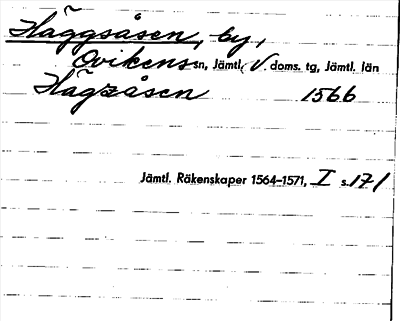 Häggsåsen, by,
Ovikens sn, Jämtl. V. doms. tg, Jämtl. län
Hägzåsen 1566
Jämtl. Räkenskaper 1564-1571, I s. 171